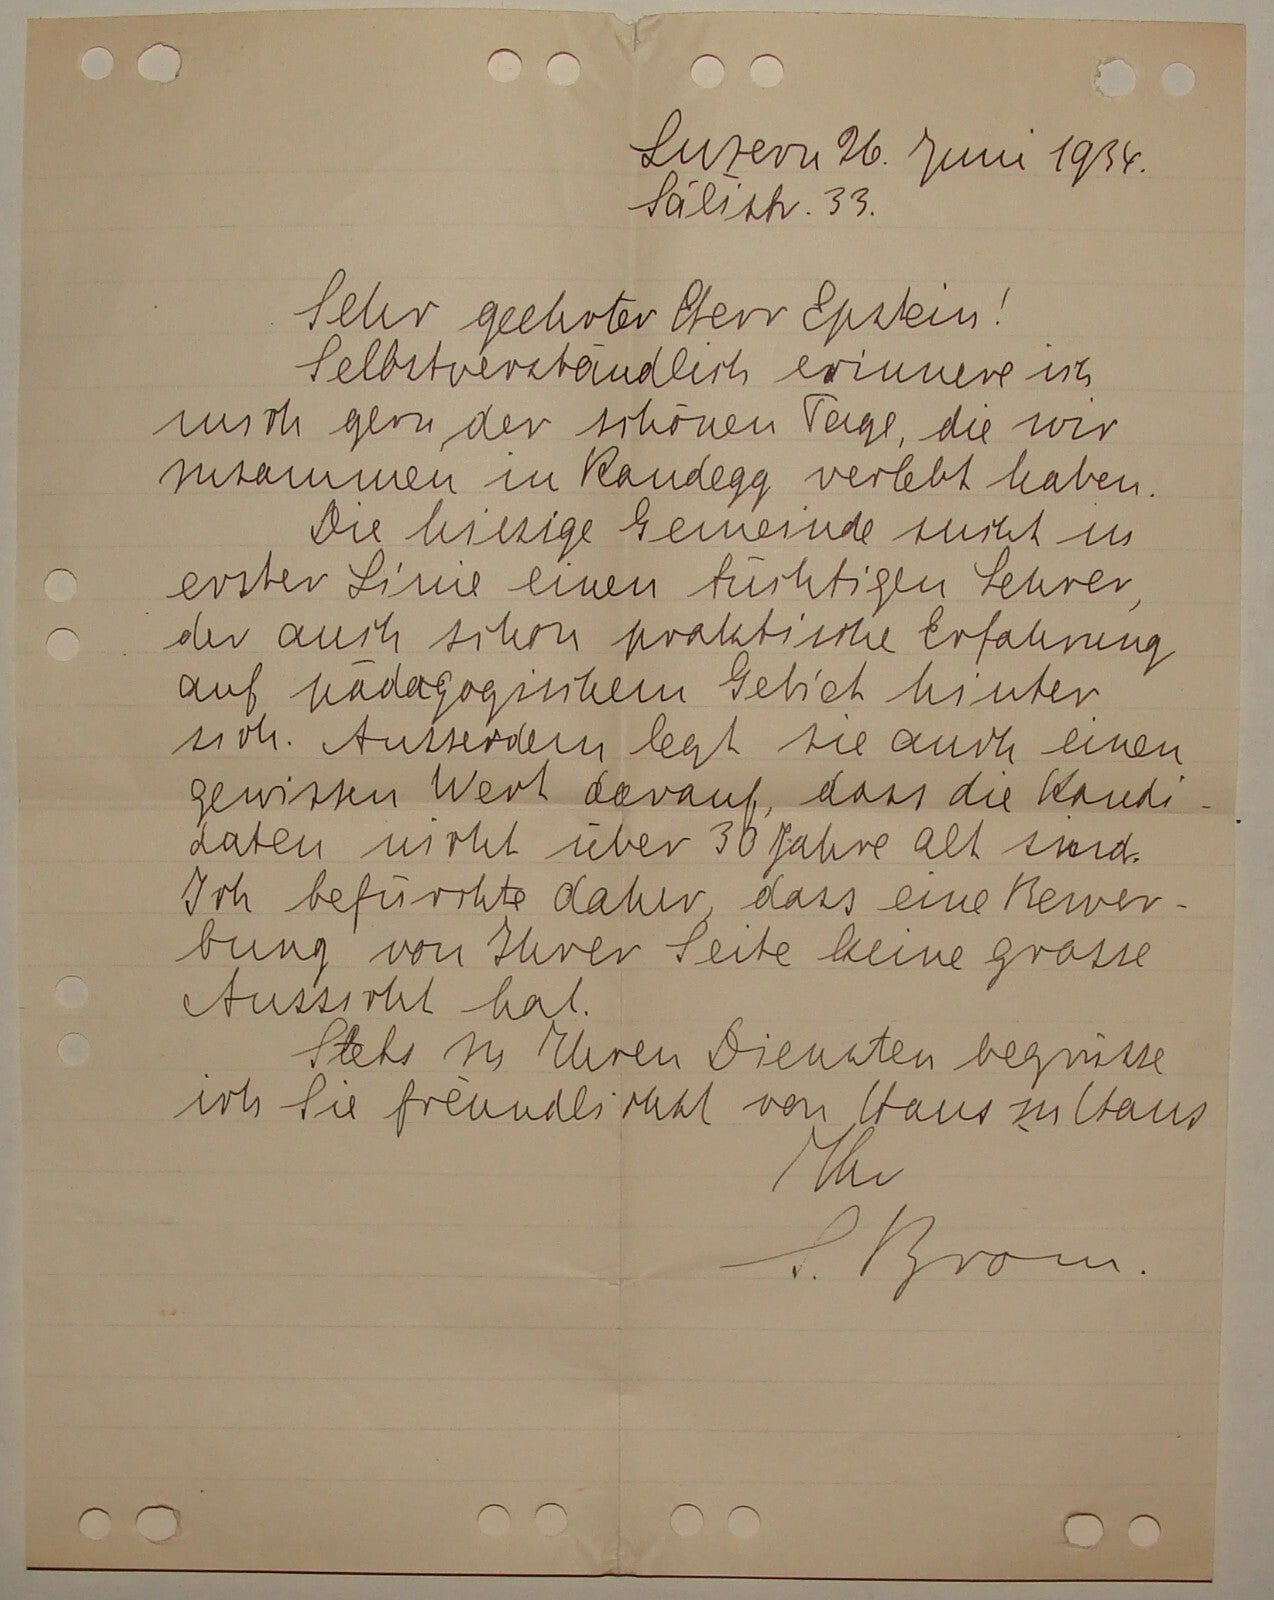 Luzern 26. Juni 1934.
Sälistr. 33.
Sehr geehrter Herr Epstein!
Selbstverständlich erinnere ich
mich gern der schönen Tage, die wir
zusammen in Randegg verlebt haben.
Die hiesige Gemeinde sucht in
erster Linie einen tüchtigen Lehrer,
der auch schon praktische Erfahrung
auf pädagogischem Gebiet hinter
sich. Ausserdem legt sie auch einen
gewissen Wert darauf, dass die Kandi-
daten nicht über 30 Jahre alt sind.
Ich befürchte daher, dass eine Bewer-
bung von Ihrer Seite keine grosse
Aussicht hat.
Stets zu Ihren Diensten begrüsse
ich Sie freundlichst von Haus zu Haus
Ihr
S. Brom.